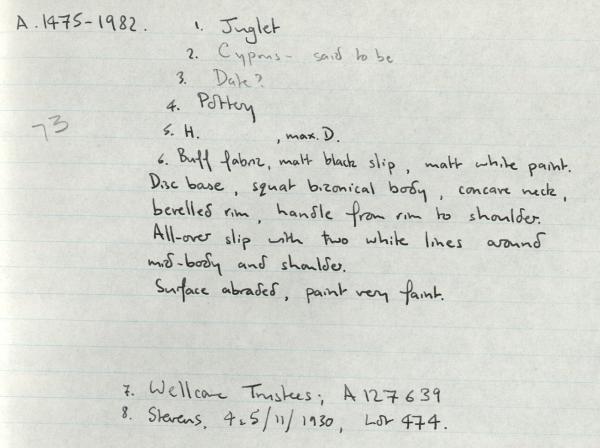 A.1475-1982. 1. Juglet
2. Cyprus - said to be
3. Date?
4. Pottery
73
5. H. , max. D.
6. Buff fabric, matt black slip, matt white paint.
Disc base, squat biconical body, concave neck,
bevelled rim, handle from rim to shoulder.
All-over slip with two white lines around
mid-body and shoulder.
Surface abraded, paint very faint.
7. Wellcome Trustees; A127639
8. Stevens, 4 & 5/11/1930, Lot 474.